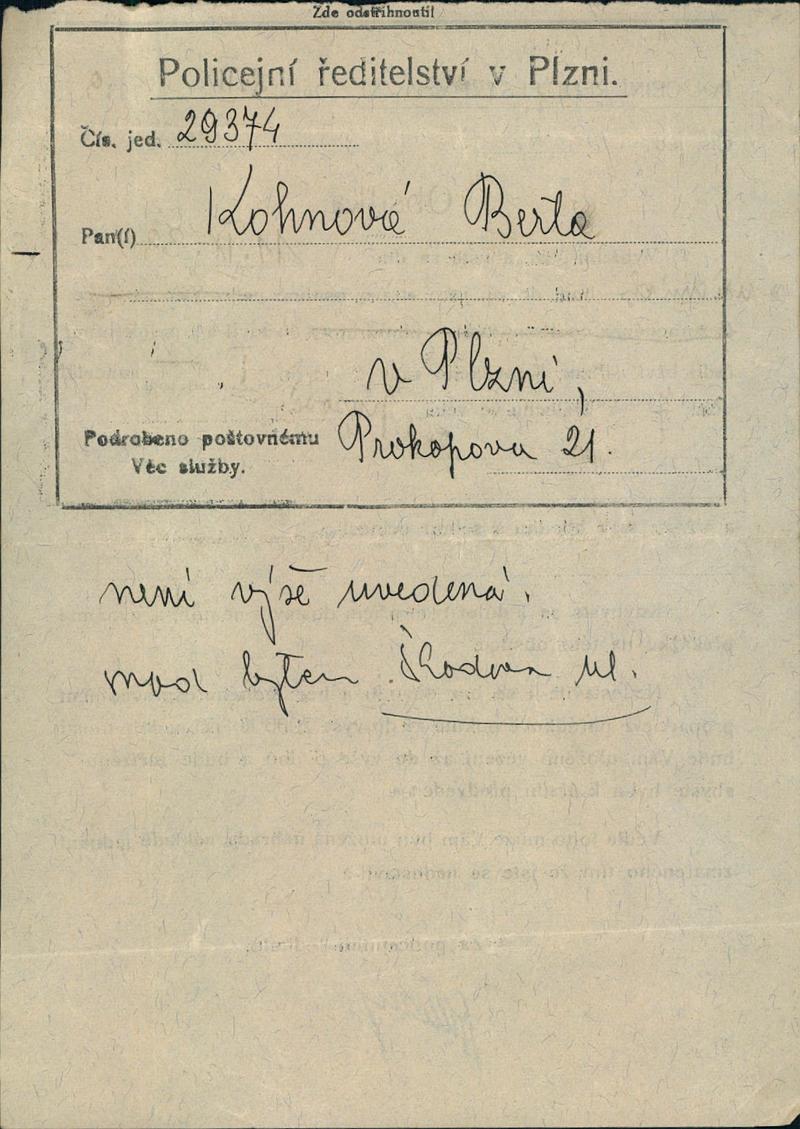 Zde odstřihnouti!
Policejní ředitelství v Plzni.
Čís. jed. 29374
Pan(í) Kohnová Berta
v Plzni,
Podrobeno poštovnému Prokopova 21.
Věc služby.
není výše uvedená.
bytem Škodova ul.